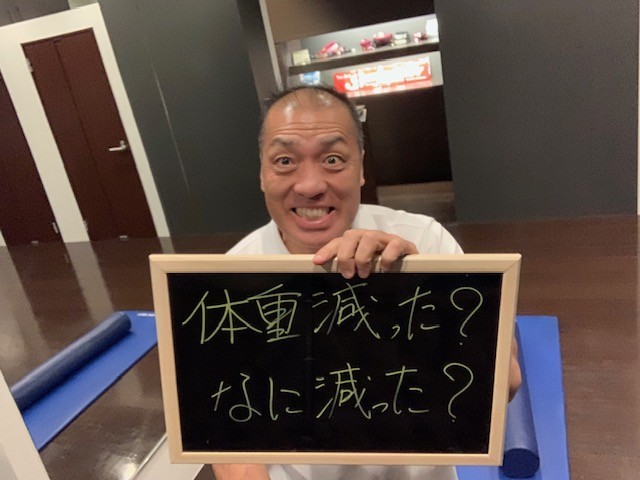 体重減った?
なに減った?